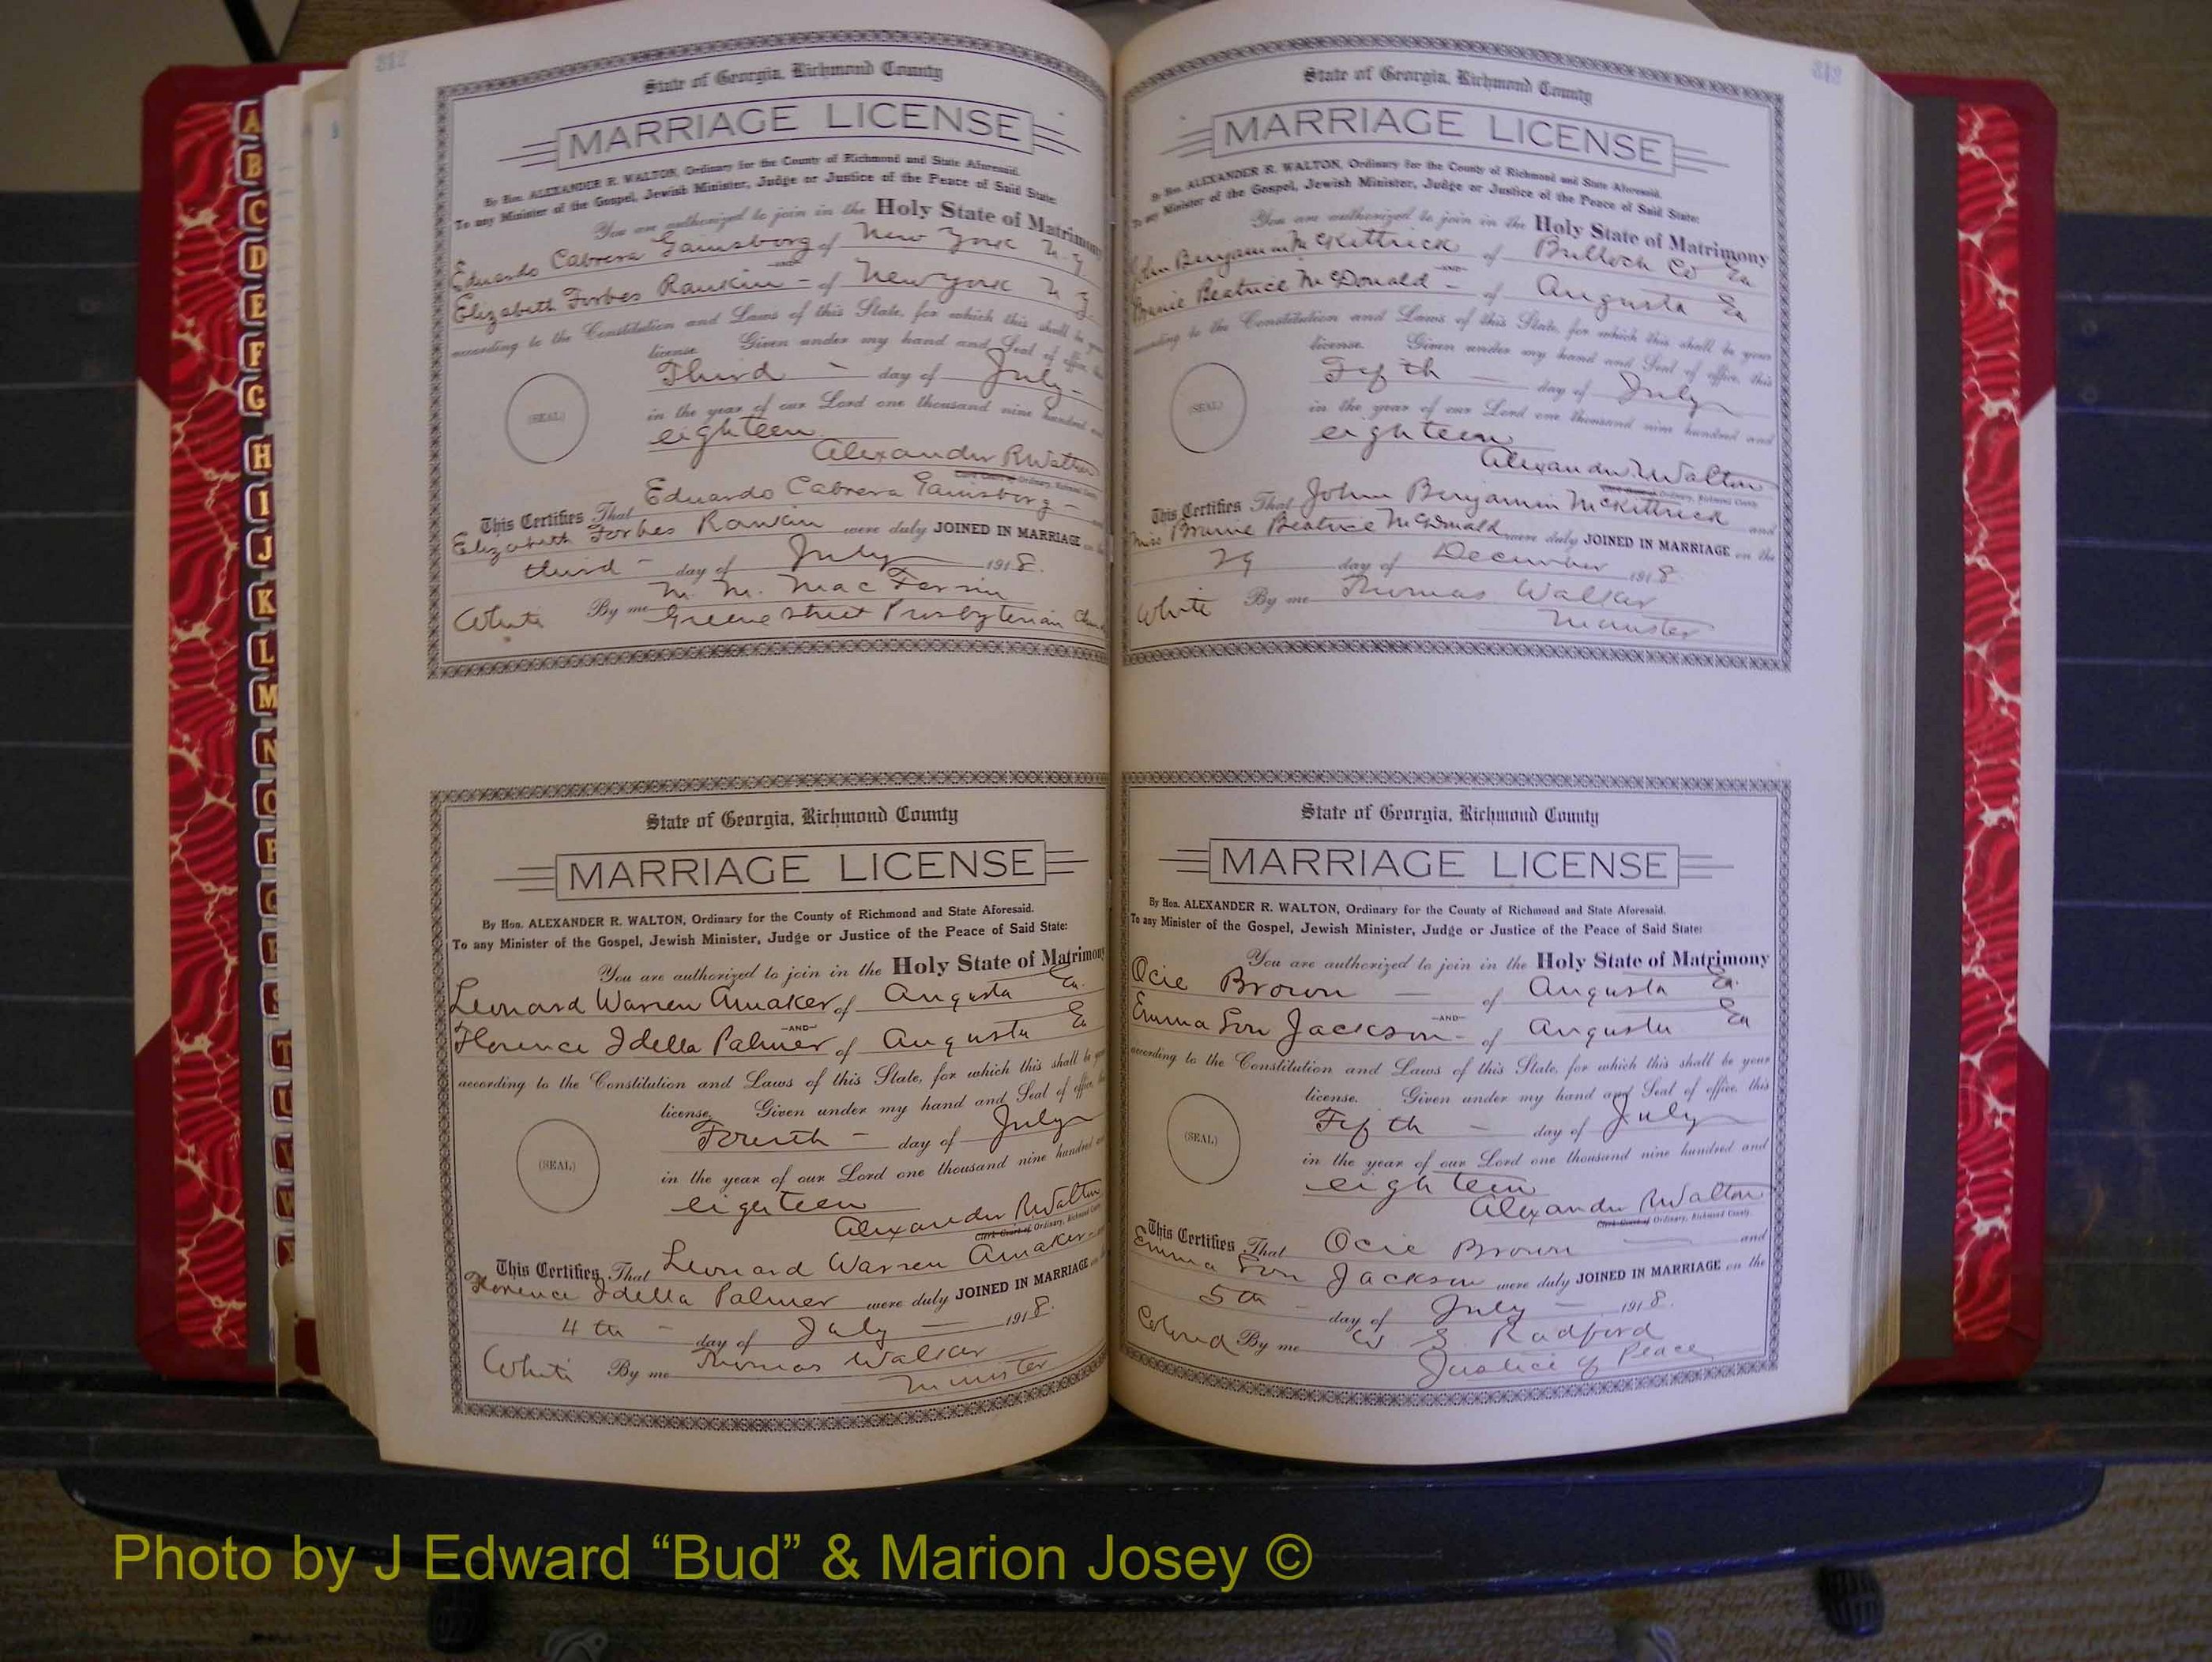 312
State of Georgia, Richmond County
MARRIAGE LICENSE
By Hon. ALEXANDER R. WALTON, Ordinary for the County of Richmond and State Aforesaid.
To any Minister of the Gospel, Jewish Minister, Judge or Justice of the Peace of Said State:
You are authorized to join in the Holy State of Matrimony
Eduardo Cabrera Gainsborg of New York N. Y
-AND-
Elizabeth Forbes Rankin - of New York N Y
according to the Constitution and Laws of this State, for which this shall be your
license. Given under my hand and Seal of office, this
(SEAL)
Third - day of July -
in the year of our Lord one thousand nine hundred and
eighteen
Alexander R Walton
Clerk Court of Ordinary, Richmond County
This Certifies That Eduardo Cabrera Gainsborg -
Elizabeth Forbes Rankin were duly JOINED IN MARRIAGE on the
third - day of July 1918.
White By me M. M. Mac Ferrin
Greene Street Presbyterian
State of Georgia, Richmond County
MARRIAGE LICENSE
By Hon. ALEXANDER R. WALTON, Ordinary for the County of Richmond and State Aforesaid.
To any Minister of the Gospel, Jewish Minister, Judge or Justice of the Peace of Said State:
You are authorized to join in the Holy State of Matrimony
Leonard Warren Amaker of Augusta Ga.
-AND-
Florence Idella Palmer of Augusta Ga
according to the Constitution and Laws of this State, for which this shall be your
license. Given under my hand and Seal of office, this
(SEAL)
Fourth - day of July
in the year of our Lord one thousand nine hundred and
eighteen
Alexander R Walton
Clerk Court of Ordinary, Richmond County
This Certifies That Leonard Warren Amaker -
Florence Idella Palmer were duly JOINED IN MARRIAGE on the
4 th - day of July - 1918.
White By me Thomas Walker
Minister
313
State of Georgia, Richmond County
MARRIAGE LICENSE
By Hon. ALEXANDER R. WALTON, Ordinary for the County of Richmond and State Aforesaid.
To any Minister of the Gospel, Jewish Minister, Judge or Justice of the Peace of Said State:
You are authorized to join in the Holy State of Matrimony
John Benjamin McKittrick of Bulloch Co Ga
-AND-
Beatrice McDonald - of Augusta Ga
according to the Constitution and Laws of this State, for which this shall be your
license. Given under my hand and Seal of office, this
(SEAL)
Fifth - day of July
in the year of our Lord one thousand nine hundred and
eighteen
Alexander R Walton
Clerk Court of Ordinary, Richmond County
This Certifies That John Benjamin McKittrick and
Miss Beatrice McDonald were duly JOINED IN MARRIAGE on the
29 day of December 1918
White By me Thomas Walker
Minister
State of Georgia, Richmond County
MARRIAGE LICENSE
By Hon. ALEXANDER R. WALTON, Ordinary for the County of Richmond and State Aforesaid.
To any Minister of the Gospel, Jewish Minister, Judge or Justice of the Peace of Said State:
You are authorized to join in the Holy State of Matrimony
Ocie Brown - of Augusta Ga.
-AND-
Emma Lou Jackson - of Augusta Ga
according to the Constitution and Laws of this State, for which this shall be your
license. Given under my hand and Seal of office, this
(SEAL)
Fifth - day of July
in the year of our Lord one thousand nine hundred and
eighteen
Alexander R Walton
Clerk Court of Ordinary, Richmond County.
This Certifies That Ocie Brown and
Emma Lou Jackson were duly JOINED IN MARRIAGE on the
5 th - day of July - 1918.
Colored By me W. S. Radford
Justice of Peace
A
B
C
D
E
F
G
H
I
J
K
L
M
N
O
P
Q
R
S
T
U
V
W
Photo by J Edward “Bud” & Marion Josey ©